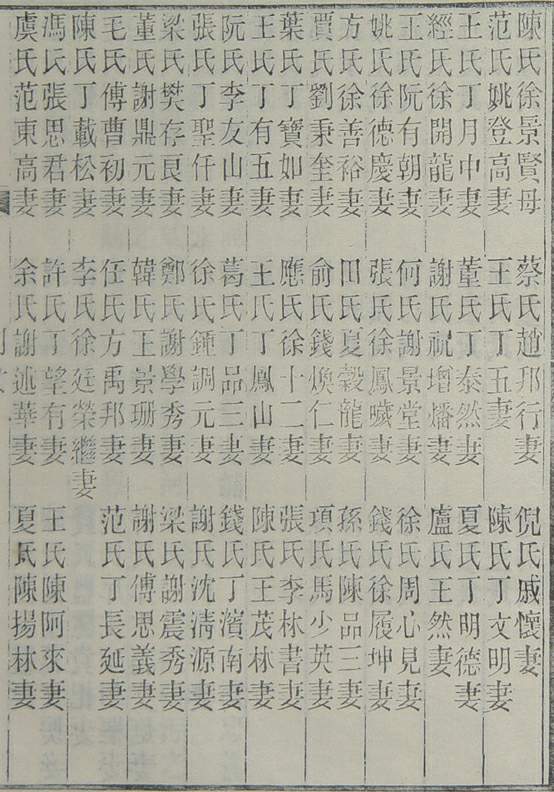 陳氏徐景賢母 蔡氏趙邦行妻 倪氏戚懷妻
范氏姚登高妻 王氏丁五妻 陳氏丁文明妻
王氏丁月中妻 董氏丁泰然妻 夏氏丁明德妻
經氏徐開龍妻 謝氏祝增燔妻 盧氏王然妻
王氏阮有朝妻 何氏謝景堂妻 徐氏周心見妻
姚氏徐德慶妻 張氏徐鳳曦妻 錢氏徐履坤妻
方氏徐善裕妻 田氏夏穀龍妻 孫氏陳品三妻
賈氏劉秉奎妻 俞氏錢煥仁妻 項氏馬少英妻
葉氏丁寶如妻 應氏徐十二妻 張氏李林書妻
王氏丁有五妻 王氏丁鳳山妻 陳氏王茂林妻
阮氏李友山妻 葛氏丁品三妻 錢氏丁濱南妻
張氏丁聖仟妻 徐氏鍾調元妻 謝氏沈清源妻
梁氏樊存良妻 鄭氏謝學秀妻 梁氏謝震秀妻
董氏謝鼎元妻 韓氏王景珊妻 謝氏傅思義妻
毛氏傅曹初妻 任氏方禹邦妻 范氏丁長延妻
陳氏丁載松妻 李氏徐廷榮繼妻
馮氏張思君妻 許氏丁望有妻 王氏陳阿來妻
虞氏范東高妻 余氏謝述華妻 夏氏陳揚林妻